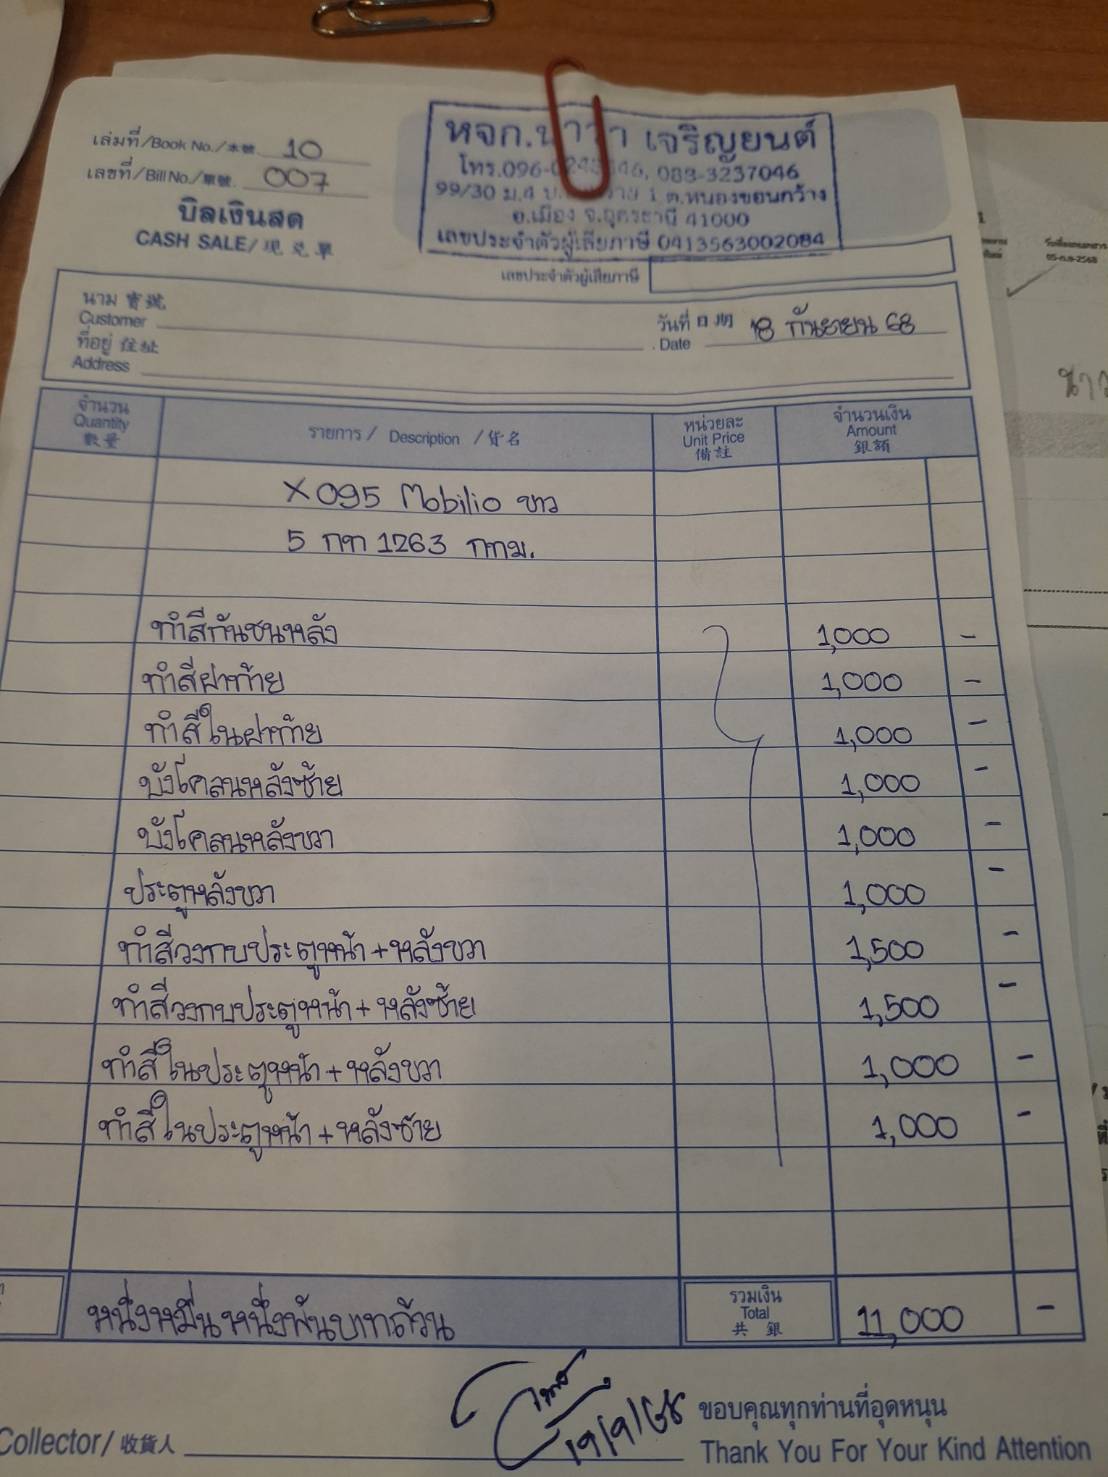 เล่มที่/Book No./本號 10
เลขที่/Bill No./單號. 007
บิลเงินสด
CASH SALE/現兌單
หจก. เจริญยนต์
โทร.096- 46, 088-3237046
99/30 ม.4 1 ต.หนองขอนกว้าง
อ.เมือง จ.อุดรธานี 41000
เลขประจำตัวผู้เสียภาษี 0413563002084
เลขประจำตัวผู้เสียภาษี
นาม 寶號
Customer
วันที่ 日期 18 กันยายน 68
Date
ที่อยู่ 住址
Address
จำนวน
Quantity
數量
รายการ / Description / 貨名
หน่วยละ
Unit Price
備註
จำนวนเงิน
Amount
銀額
X095 Mobilio ขาว
5 กท 1263 กทม.
ทำสีกันชนหลัง 1,000 -
ทำสีฝาท้าย 1,000 -
ทำสีในฝาท้าย 1,000 -
บังโคลนหลังซ้าย 1,000 -
บังโคลนหลังขวา 1,000 -
ประตูหลังขวา 1,000 -
ทำสีวงกบประตูหน้า+หลังขวา 1,500 -
ทำสีวงกบประตูหน้า+หลังซ้าย 1,500 -
ทำสีในประตูหน้า+หลังขวา 1,000 -
ทำสีในประตูหน้า+หลังซ้าย 1,000 -
หนึ่งหมื่นหนึ่งพันบาทถ้วน
รวมเงิน
Total
共 銀
11,000 -
19/9/68
ขอบคุณทุกท่านที่อุดหนุน
Collector/ 收貨人
Thank You For Your Kind Attention
05-ก.ย-2568